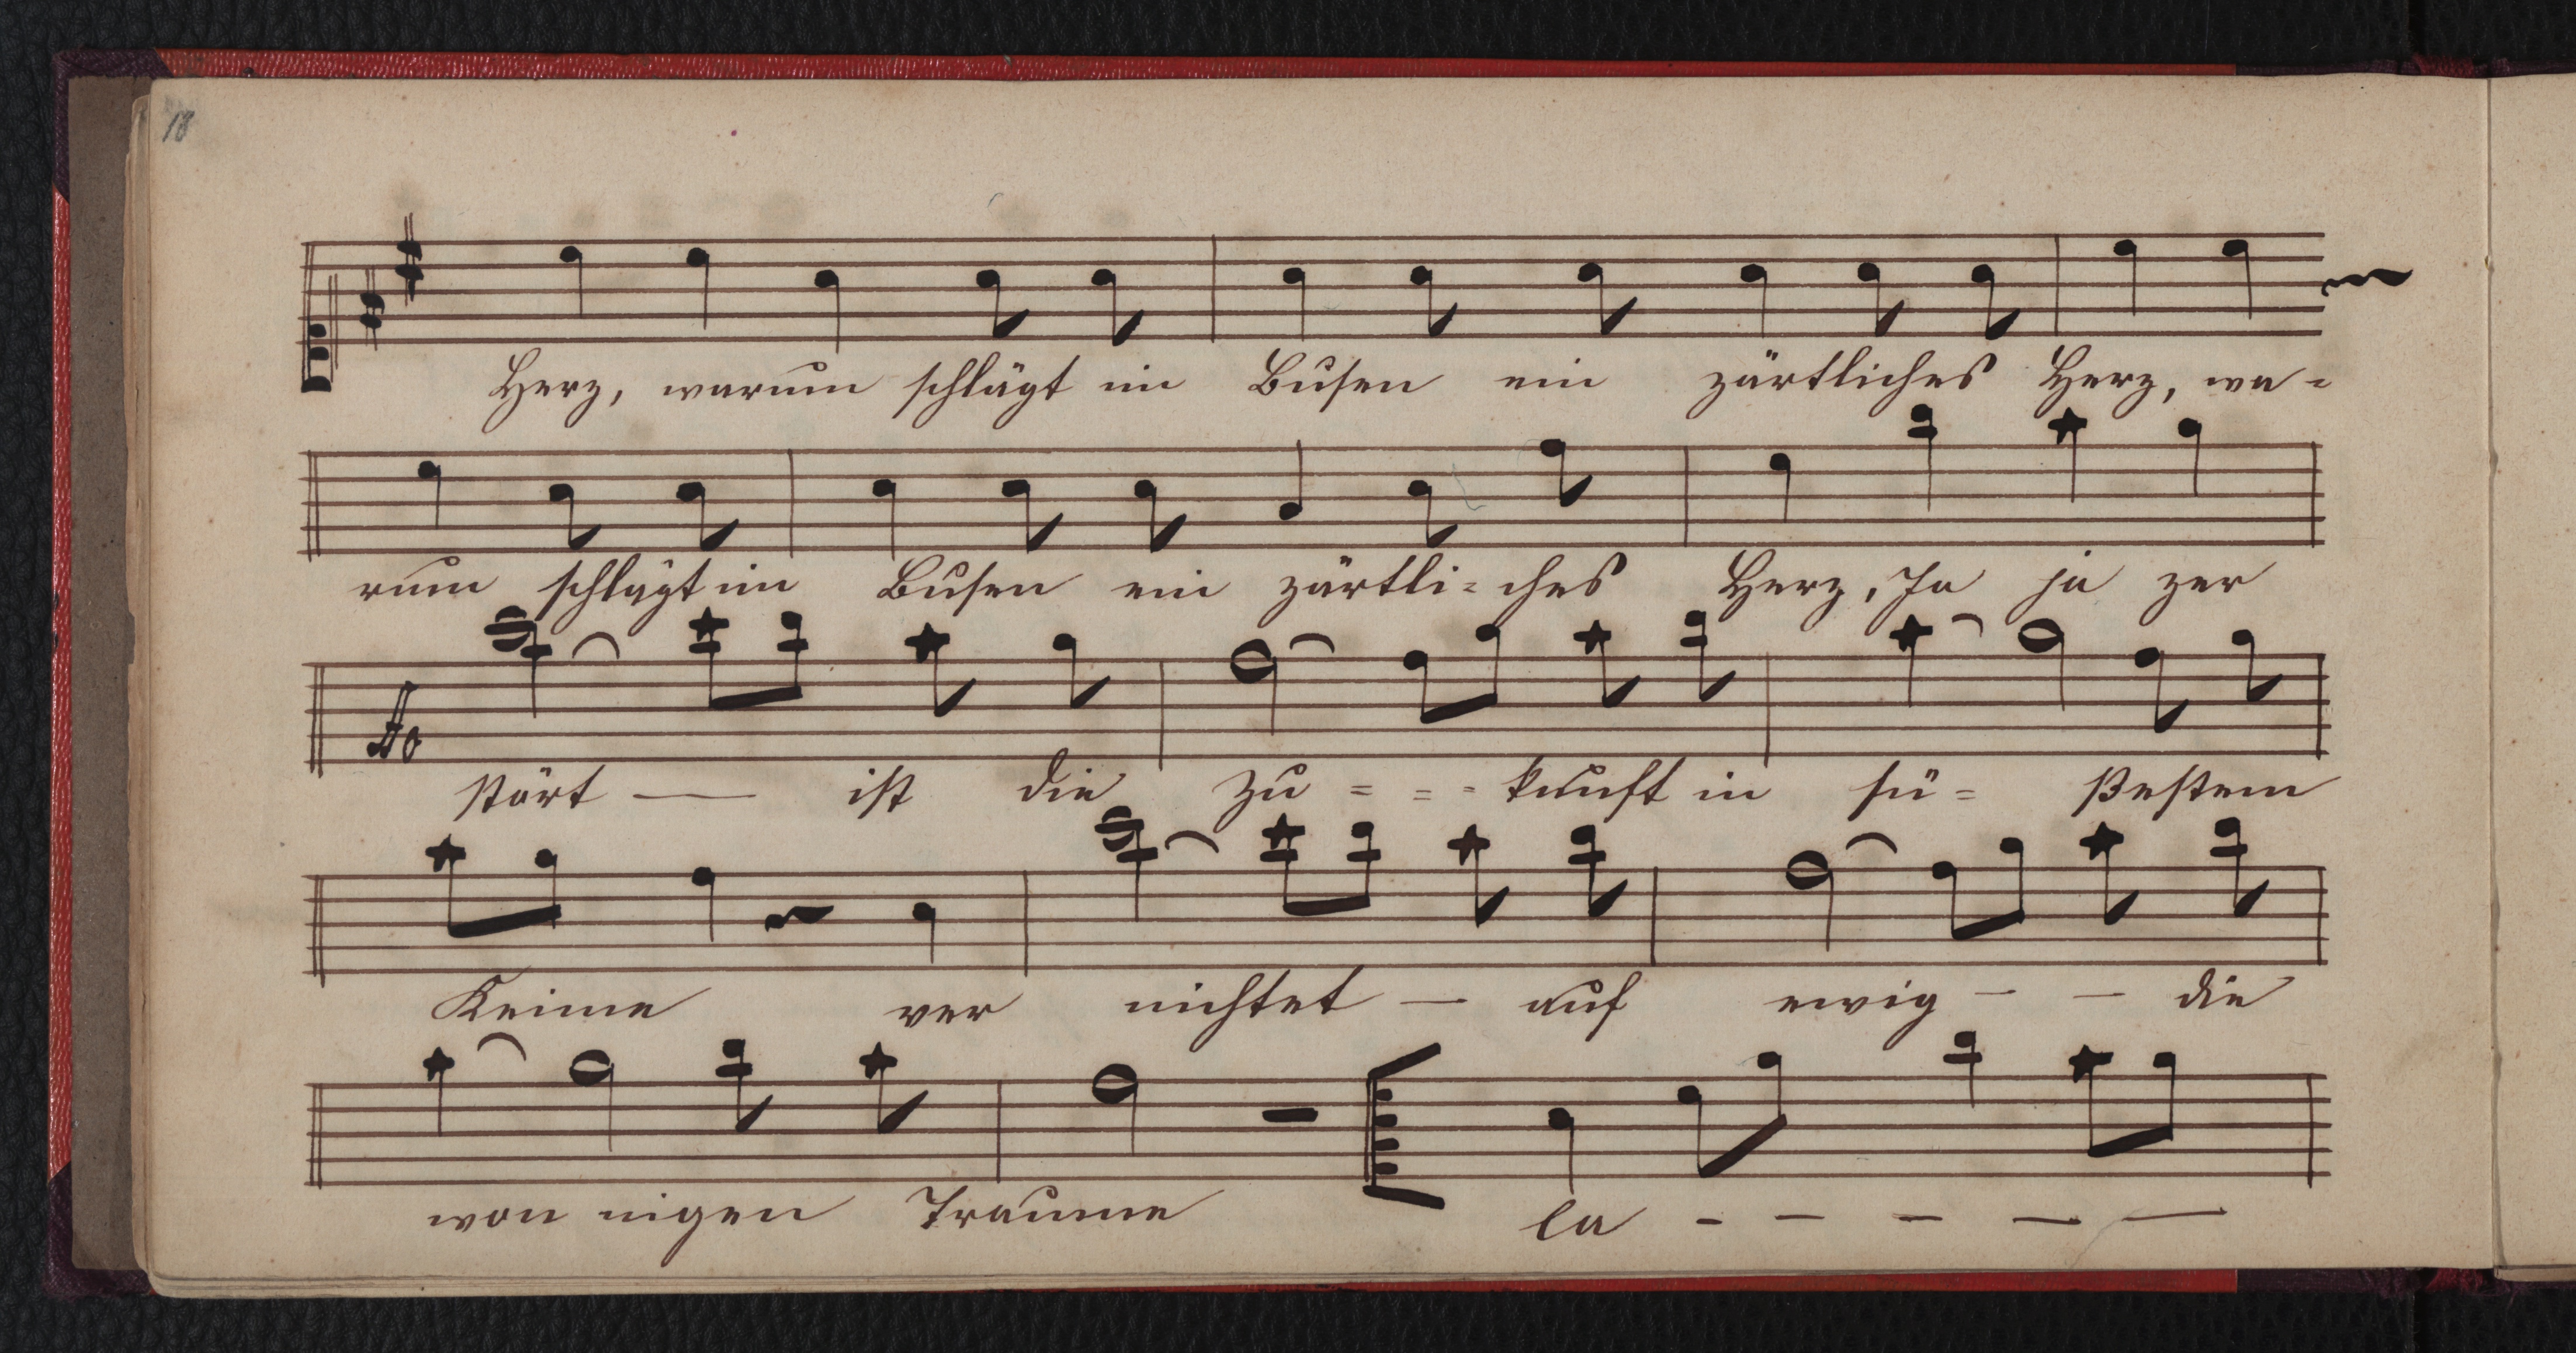 18
Herz, warum schlägt im Busen ein zärtliches Herz, wa=
rum schlägt im Busen ein zärtli=ches Herz, Ja ja zer
stört — ist die Zu = = = kunft in sü= ßestem
Keime ver nichtet — auf ewig – – die
won nigen Traume la - - - - —